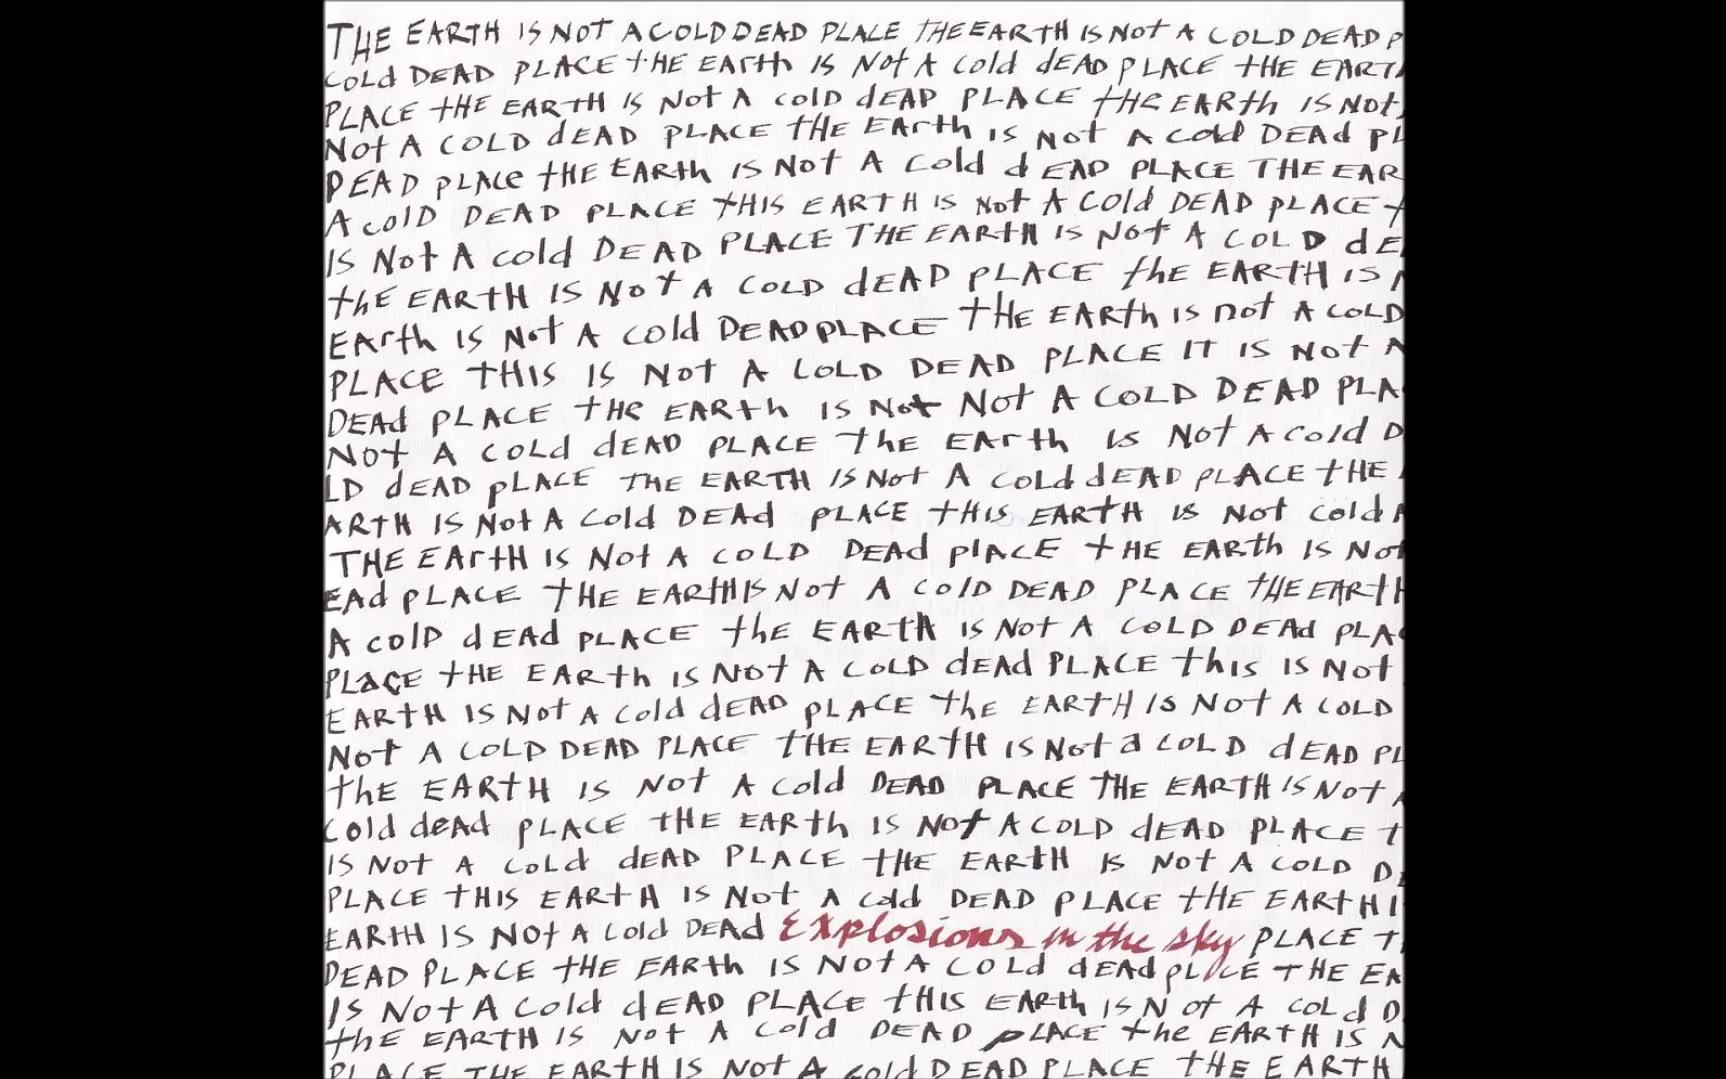 THE EARTH IS NOT A COLD DEAD PLACE THE EARTH IS NOT A COLD DEAD P
COLd DEAD PLACE tHE EArth IS Not A Cold dEAD PLACE tHE EART
PLACE tHE EARTH IS Not A colD dEAD PLACE tHE EARth IS Not
Not A COLD dEAD PLACE tHE EArth is Not A Cold DEAd PL
DEAD pLACe tHE EARth IS Not A Cold dEAD PLACE THE EAR
A colD DEAD PLACE tHIS EARTH IS Not A Cold DEAD pLACE t
IS Not A cold DEAD PLACE THE EARtH IS Not A COLD dE
thE EARtH IS Not A COLD dEAD PLACE thE EARtH IS N
EArth IS Not A cold DEAD PLACE tHE EARth is not A coLD
PLACE tHIS IS Not A COLD DEAD PLACE IT IS Not A
DEAd PLACE tHe EARth IS Not Not A COLD DEAD PLA
Not A COLd dEAD PLACE thE EArth is Not A Cold D
LD dEAD pLACE THE EARTH IS Not A COLd dEAD PLACE tHE
ARTH IS Not A Cold DEAd PLACE tHIS EARtH is Not Cold A
THE EArtH IS Not A coLD DEAd plACE tHE EARth IS Not
EAd pLACE tHE EARtH IS Not A ColD DEAD PLACE tHE EARtH
A colD dEAd pLACE thE EARth IS Not A COLD DEAd PLA
PLaCE tHE EARth IS Not A COLD dEAd PLACE this IS Not
EARtH IS Not A Cold dEAD pLACE thE EARTH IS Not A COLD
Not A COLD DEAD PLACE tHE EARtH IS Not a COLD dEAD PL
thE EARtH IS Not A Cold DEAD PLACE tHE EARTH IS Not A
Cold deAd pLACE tHE EARth IS Not A COLD dEAD PLACE t
IS Not A COLd dEAD PLACE tHE EARtH IS Not A COLD D
PLACE tHIS EARtH IS Not A cold DEAD PLACE tHE EARtH I
EARtH IS Not A Cold DEAD Explosions in the sky PLACE T
DEAD PLACE tHE EARth IS Not A COLd dEAd pLACE tHE EA
IS Not A Cold dEAD PLACE tHIS EARth IS Not A COLd D
thE EARtH IS Not A Cold DEAD pLACE the EARtH IS N
PLACE THE EARTH IS NOT A Cold DEAD PLACE THE EARTH